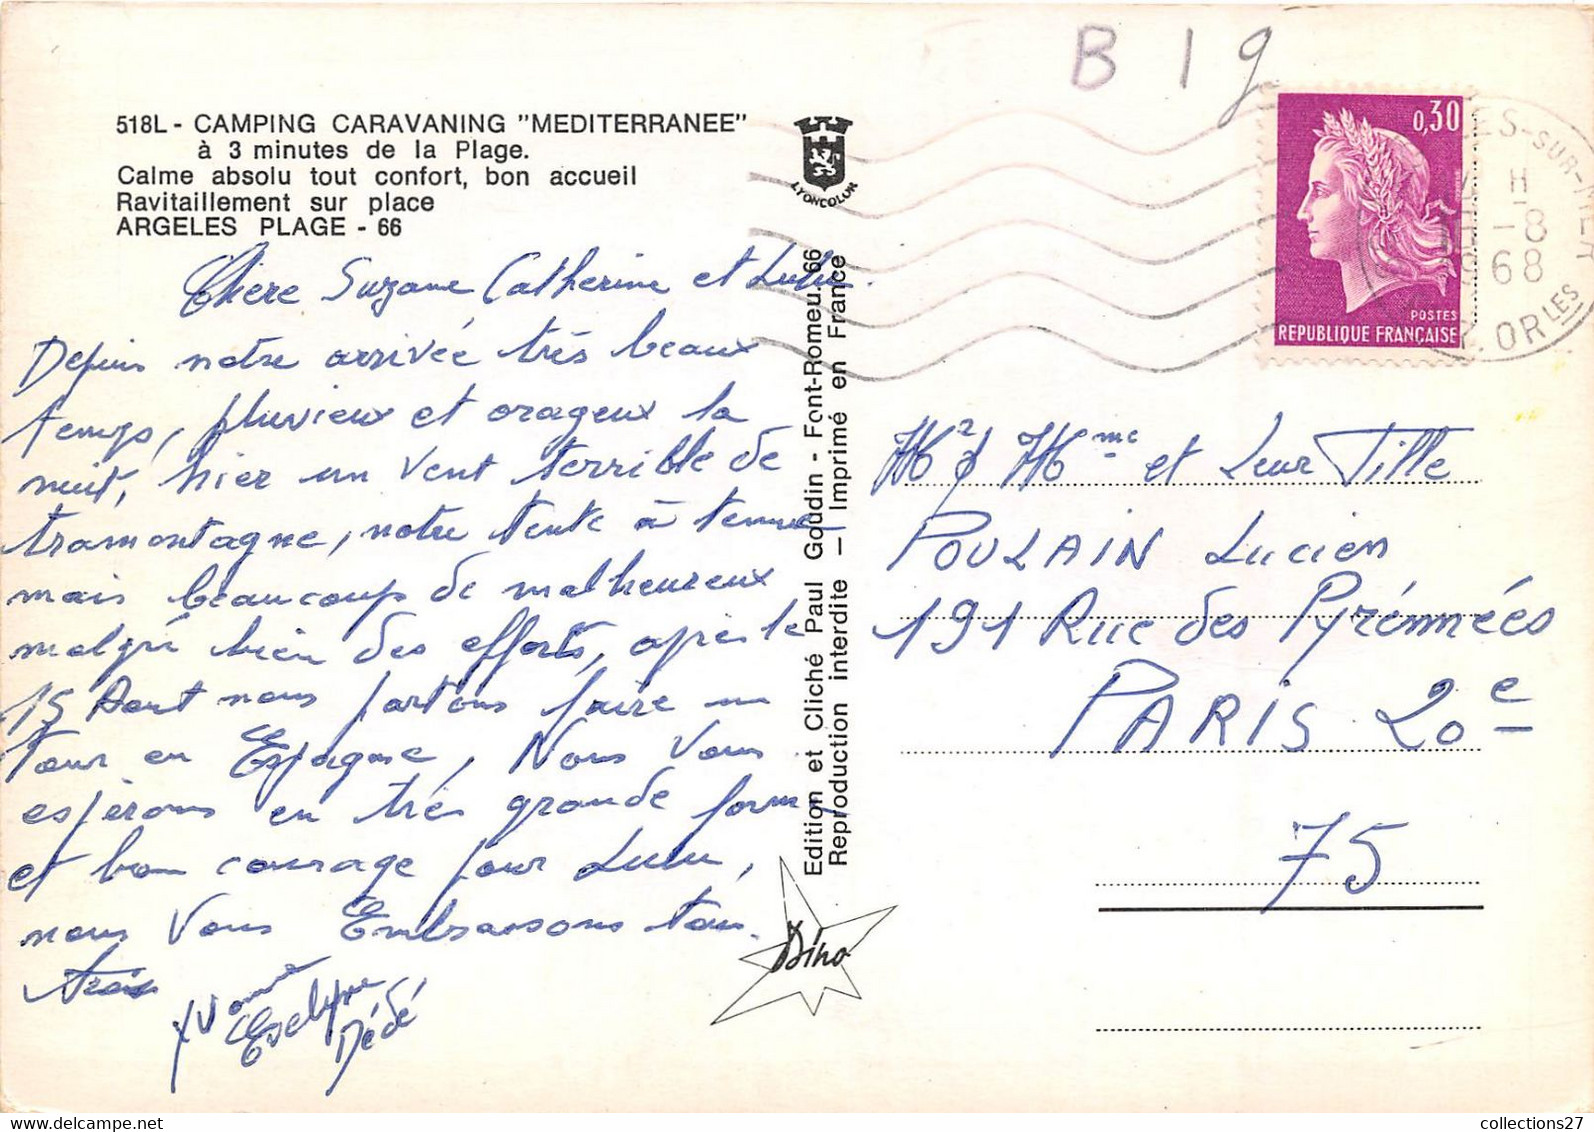 B 1 9
518L - CAMPING CARAVANING "MEDITERRANEE"
à 3 minutes de la Plage.
Calme absolu tout confort, bon accueil
Ravitaillement sur place
ARGELES PLAGE - 66
LYONCOLOR
0,30
POSTES
REPUBLIQUE FRANÇAISE
ES-SUR-MER
H
-8
1968
P. ORLES
Chère Suzanne Catherine et Lulu.
Depuis notre arrivée très beaux
temps, pluvieux et orageux la
nuit, hier un vent terrible de
tramontagne, notre tente à tenue
mais beaucoup de malheureux
malgré bien des efforts, après le
15 Aout nous partons faire un
tour en Espagne, Nous Vous
espérons en très grande forme
et bon courage pour Lulu,
nous Vous Embrassons tous
trois
Yvonne
Evelyne
Dédé
Edition et Cliché Paul Goudin - Font-Romeu. 66
Reproduction interdite - Imprimé en France
Dino
Mr & Mme et Leur Fille
POULAIN Lucien
191 Rue des Pyrénnées
PARIS 20e
75
collections27